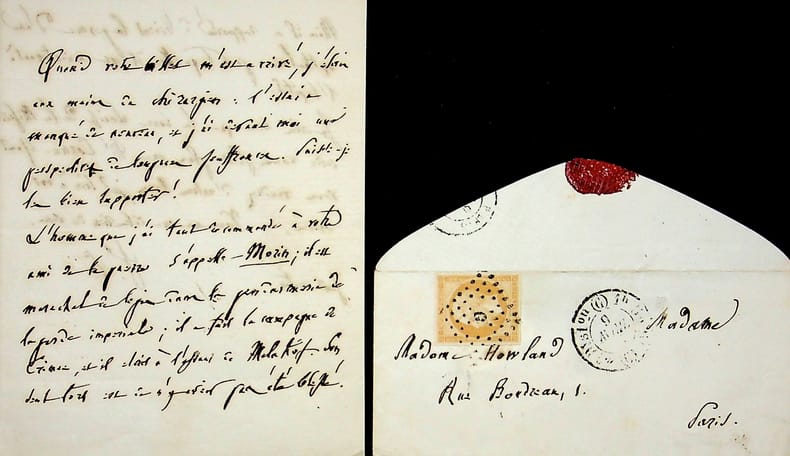 Quand votre billet m'est arrivé, j'étais
aux mains du chirurgien : l'essai a
manqué de nouveau, et j'ai devant moi une
perspective de longues souffrances. Puissé-je
les bien supporter !
L'homme que j'ai tant recommandé à votre
ami de la guerre s'appelle Morin ; il est
maréchal des logis dans la gendarmerie de
la garde impériale ; il a fait la campagne de
Crimée, et il était à l'assaut de Malakof. Son
tort est de n'avoir pas été blessé.
Madame
Madame Howland
Rue Bordeaux, 1.
Paris.